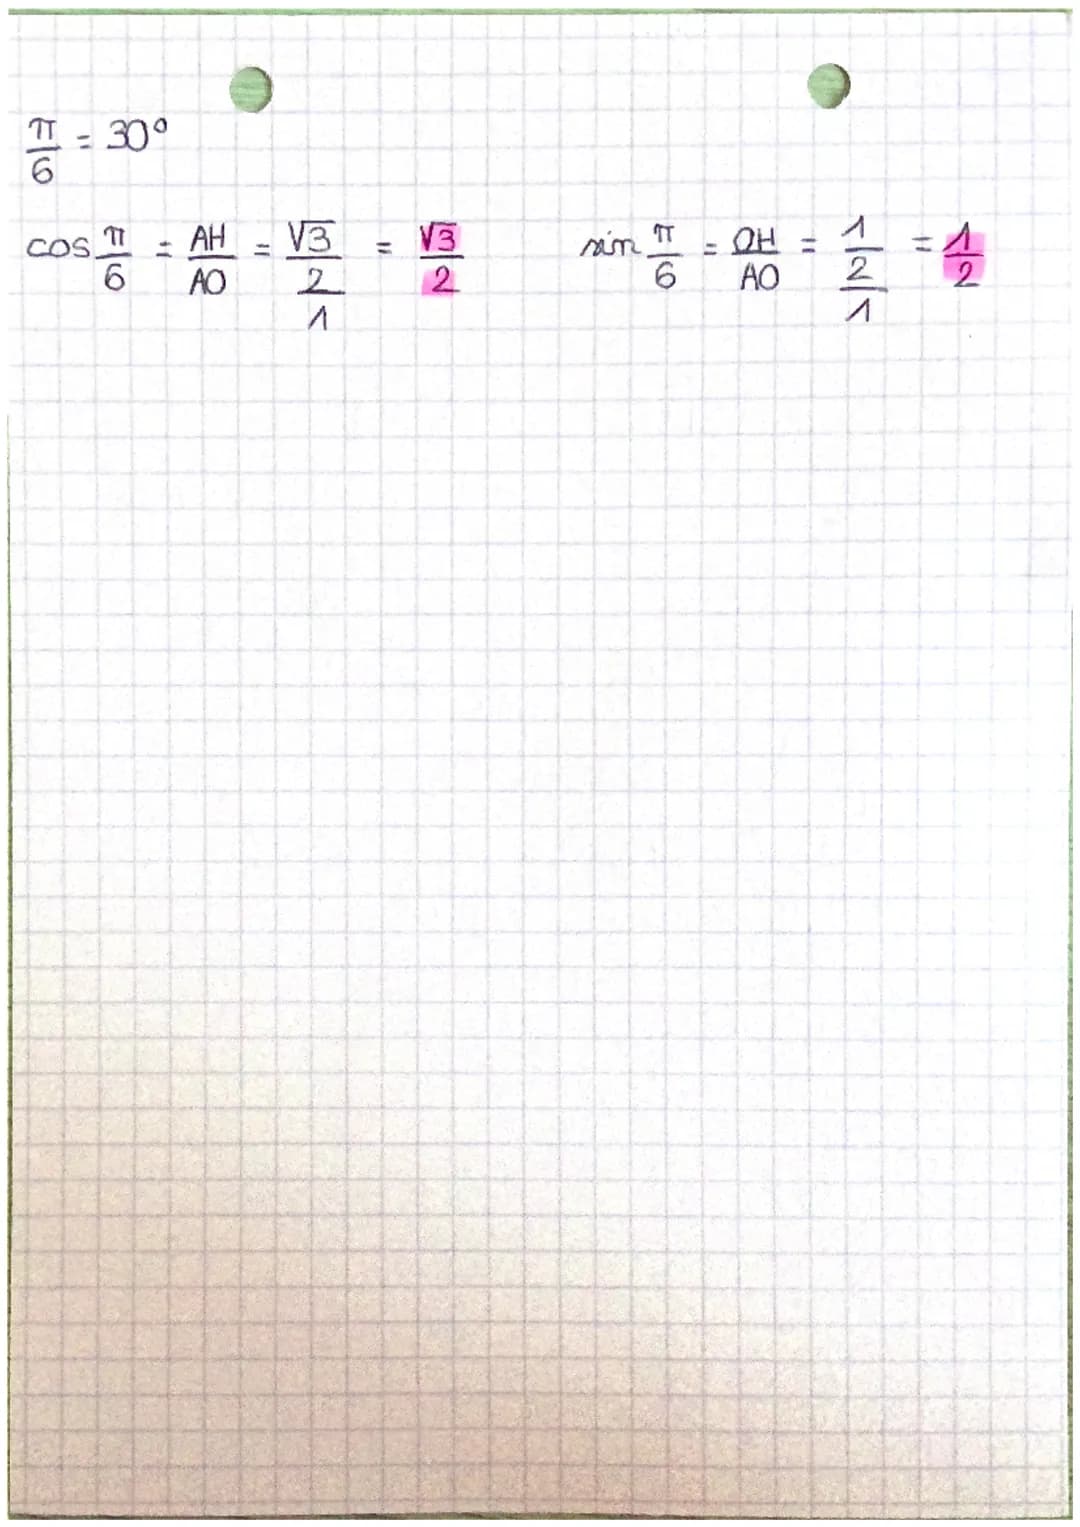 π/6 = 30°
cos π/6 = AH/AO = (√3/2)/1 = √3/2
sin π/6 = OH/AO = (1/2)/1 = 1/2